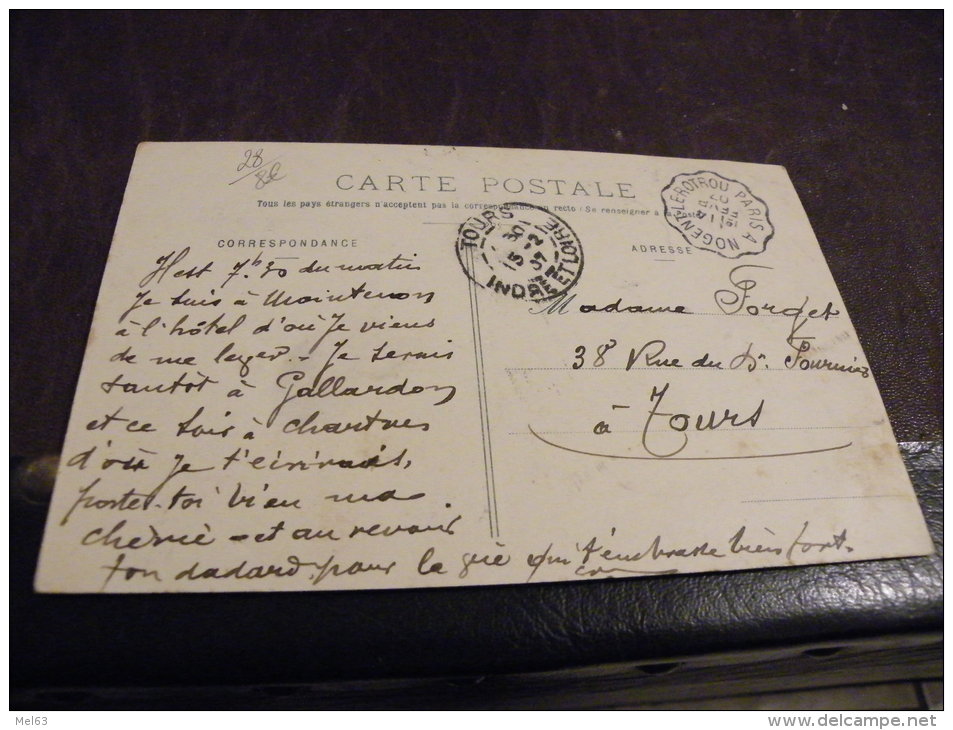 28/82
CARTE POSTALE
Tous les pays étrangers n'acceptent pas la correspondance au recto (Se renseigner à la poste)
CORRESPONDANCE
ADRESSE
TOURS
15 30
INDRE ET LOIRE
NOGENT-LE ROTROU PARIS A
Il est 7h 50 du matin
Je suis à Maintenon
à l'hôtel d'où Je viens
de me lever. - Je serais
tantôt à Gallardon
et ce soir à Chartres
d'où Je t'écrirais,
portes-toi bien ma
chérie - et au revoir
ton dadard pour la vie qui t'embrasse bien fort.
Madame Forget
38 Rue du Dr. Fournier
à Tours
Mel63
delcampe.net